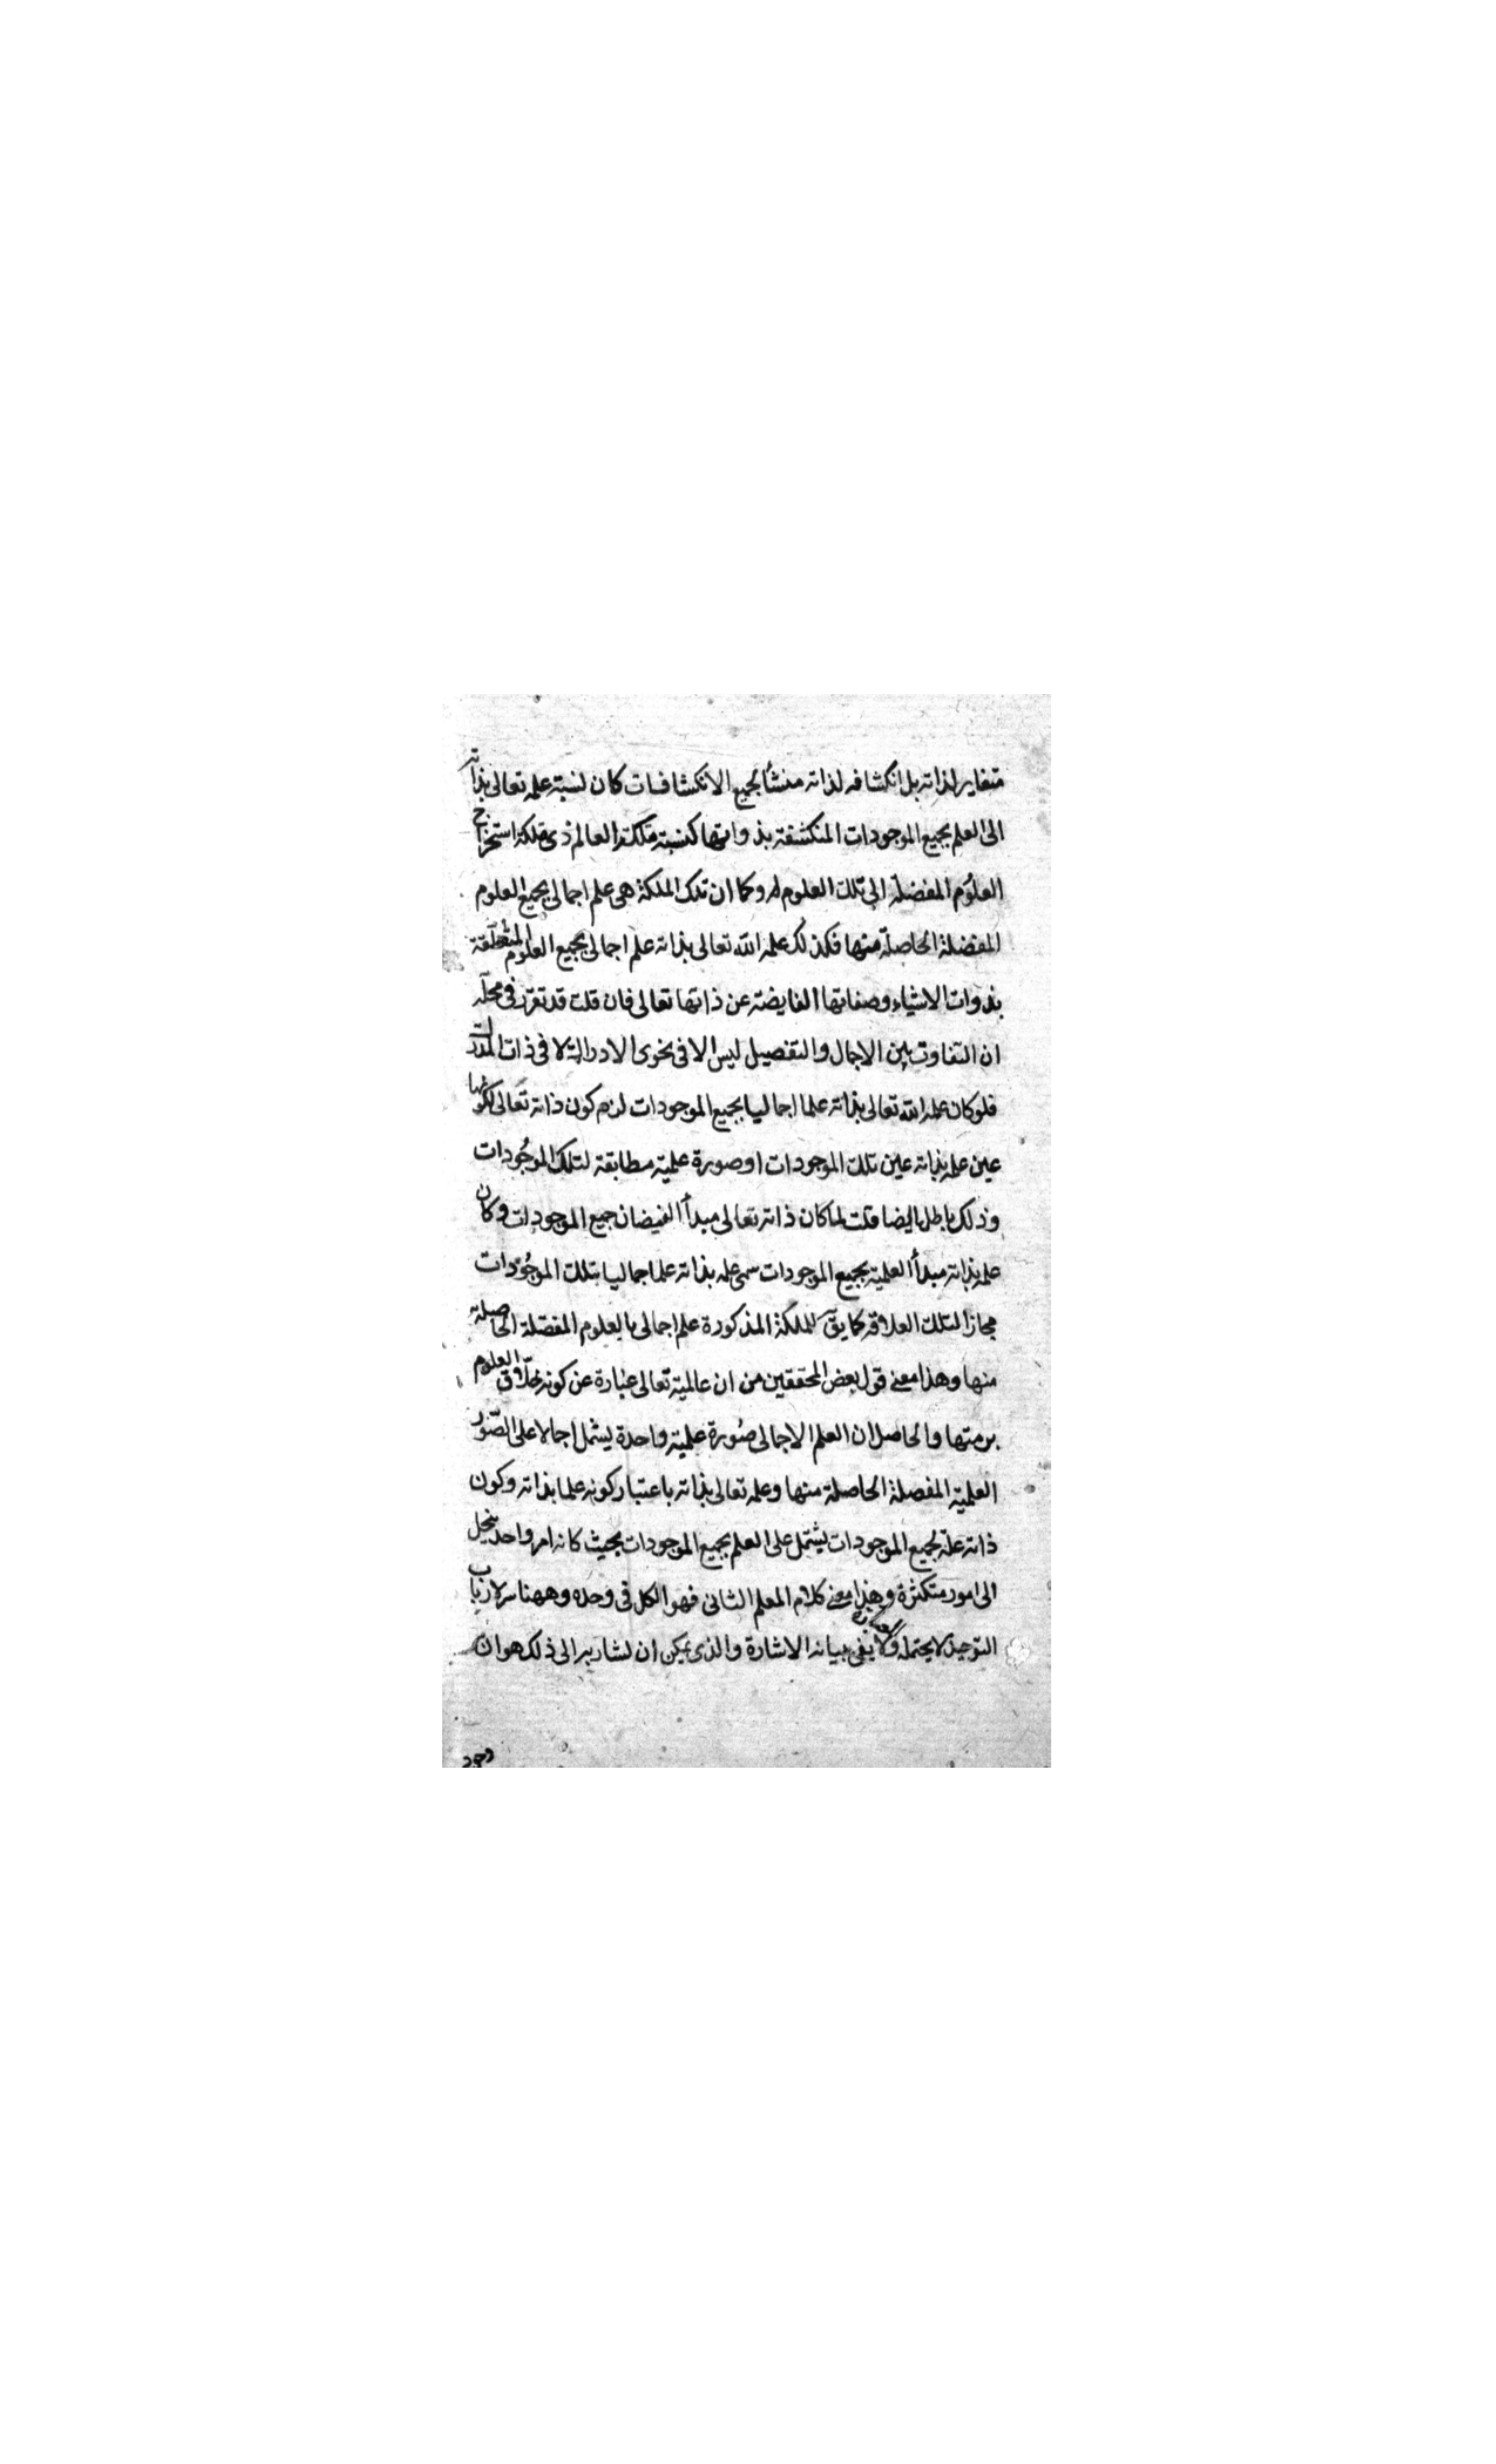 متغاير لذاته بل انكشافه لذاته منشأ لجميع الانكشافات كان نسبة علمه تعالى بذاته
الى العلم بجميع الموجودات المنكشفة بذواتها كنسبة ملكة العالم ذى ملكة استخراج
العلوم المفصلة الى تلك العلوم له وكما ان تلك الملكة هى علم اجمالى بجميع العلوم
المفصلة الحاصلة منها فكذلك علم الله تعالى بذاته علم اجمالى بجميع العلوم المتعلقة
بذوات الاشياء وصفاتها الفايضة عن ذاتها تعالى فان قلت قد تقرر فى محله
ان التفاوت بين الاجمال والتفصيل ليس الا فى نحوى الادراك لا فى ذات المدرك
فلو كان علم الله تعالى بذاته علما اجماليا بجميع الموجودات لزم كون ذاته تعالى لكونها
عين علمه بذاته عين تلك الموجودات او صورة علمية مطابقة لتلك الموجودات
وذلك باطل ايضا قلت لما كان ذاته تعالى مبدأ الفيضان جميع الموجودات وكان
علمه بذاته مبدأ العلمية بجميع الموجودات سمى علمه بذاته علما اجماليا بتلك الموجودات
مجازا لتلك العلاقة كما يق للملكة المذكورة علم اجمالى بالعلوم المفصلة الحاصلة
منها وهذا معنى قول بعض المحققين من ان عالمية تعالى عبارة عن كونه خلاق العلوم
برمتها والحاصل ان العلم الاجمالى صورة علمية واحدة يشمل اجمالا على الصور
العلمية المفصلة الحاصلة منها وعلمه تعالى بذاته باعتبار كونه علما بذاته وكون
ذاته علة لجميع الموجودات يشتمل على العلم بجميع الموجودات بحيث كانه امر واحد ينحل
الى امور متكثرة وهذا معنى كلام المعلم الثانى فهو الكل فى وحده وههنا سر لارباب
التوحيد لا يحتمله ولا يفى ببيانه الاشارة والذى يمكن ان نشار به الى ذلك هو ان
وجود